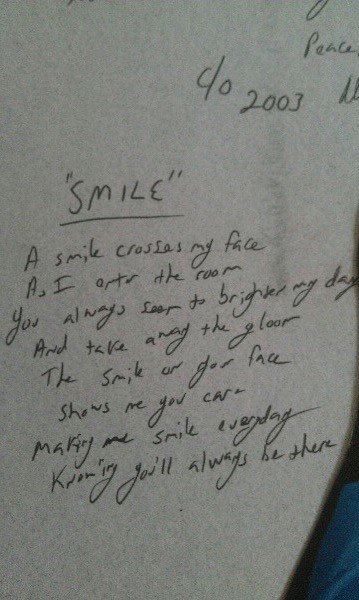 Peace,
c/o 2003
"SMILE"
A smile crosses my face
As I enter the room
You always seem to brighten my day
And take away the gloom
The smile on your face
shows me you care
Making me smile everyday
Knowing you'll always be there